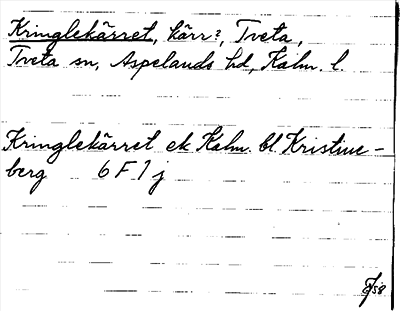 Kringlekärret, kärr?, Tveta,
Tveta sn, Aspelands hd, Kalm. l.
Kringlekärret ek Kalm. bl. Kristine-
berg 6 F 1 j